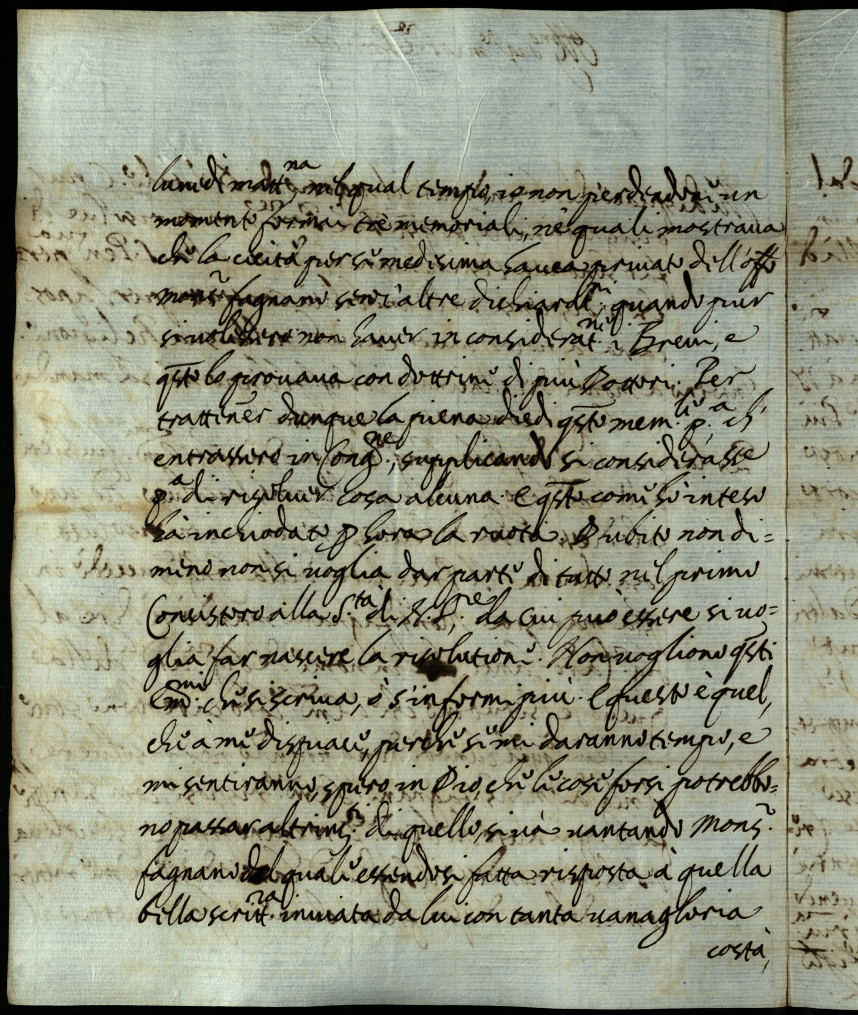 lunedi matt.na nel qual tempo, io non perdendoci un
momento formai trè memoriali, nè quali mostraua
che la cecità per se medesima hauea priuato dell'offo
mons.r fagnano senz'altre dichiarat.ni, quando pur
si uolessero non hauer in considerat.ne i Breui, e
q.sto lo prouaua con dottrine di più Dottori. Per
trattiner dunque la piena diedi q.sto mem.le p.a ch'
entrassero in Cong.ne, supplicando si considerasse
p.a di risoluer cosa alcuna. E q.sto come hò inteso
hà inchiodato p hora la ruota. Dubito non di=
meno non si uoglia dar parte di tutto nel primo
Consistoro alla S.tà di N. S.re da cui può essere si uo=
glia far nascere la risolutione. Non uogliono q.sti
Em.mi che si scriua, ò s'informi più. E questo è quel,
che à me dispiace, perche se mi daranno tempo, e
mi sentiranno, spero in Dio, che le cose forsi potrebbo=
no passar altrim.ti di quello, si uà uantando Mons.r
fagnano del quale essendosi fatta risposta à quella
bella scritt.ra inuiata da lui con tanta uanagloria
costà,